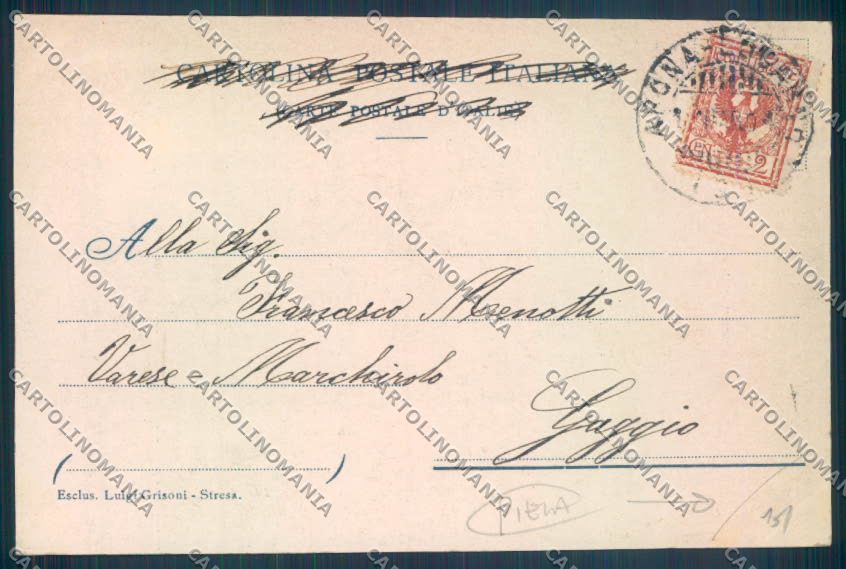 CARTOLINA POSTALE ITALIANA
CARTE POSTALE D'ITALIE
ARONA
CENT. 2
Alla Sig.
Francesco Menotti
Varese = Marchirolo
Gaggio
( )
Esclus. Luigi Grisoni - Stresa.
15
CARTOLINOMANIA